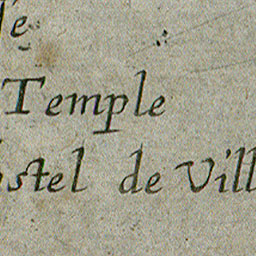 Temple
ostel de Vill